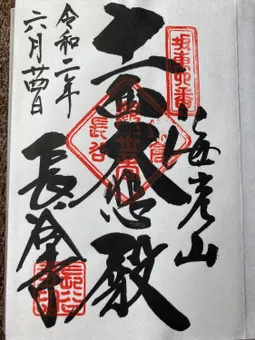 坂東四番
海光山
十一面大悲殿
長谷寺
令和二年
六月廿四日